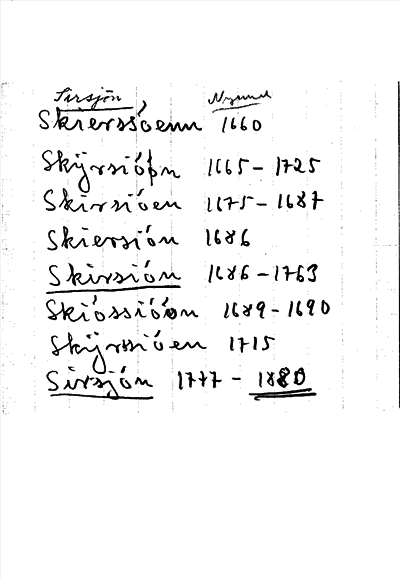 Sirsjön Nymed
Skierssóenn 1660
Skÿrsióhn 1665 - 1725
Skirsióen 1675 - 1687
Skiersión 1686
Skirsión 1686 - 1763
Skióssióón 1689 - 1690
Skÿrssióen 1715
Sirsjón 1777 - 1880